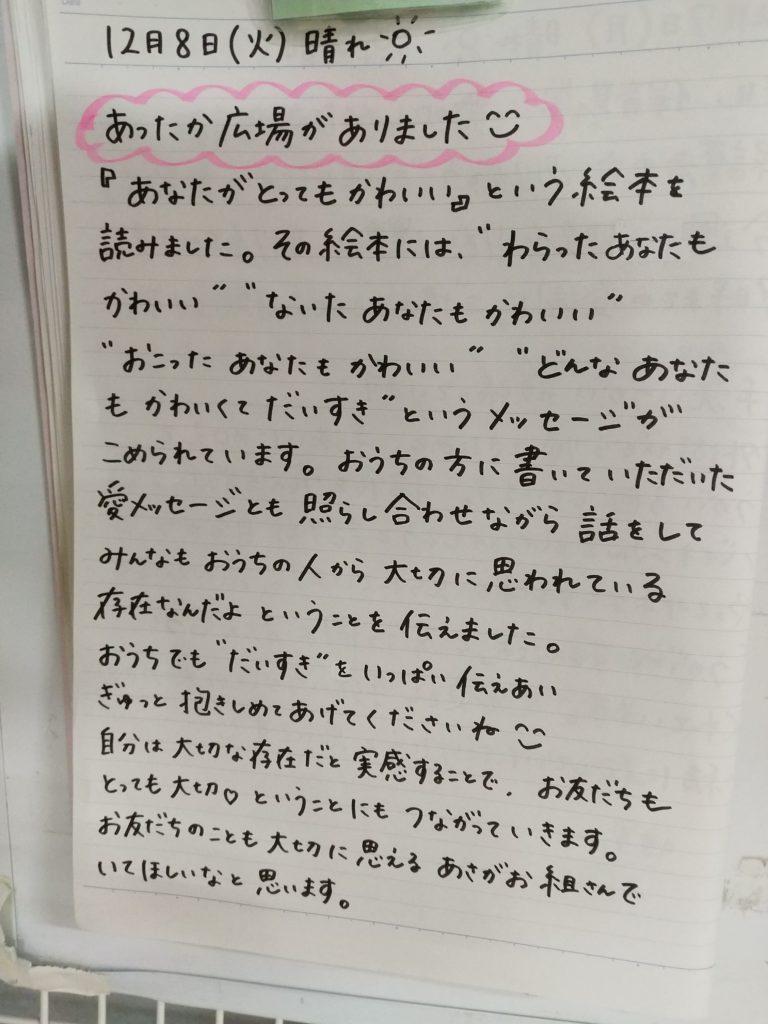 12月8日(火) 晴れ
あったか広場がありました
『あなたがとってもかわいい』という絵本を
読みました。その絵本には、"わらったあなたも
かわいい" "ないた あなたも かわいい"
"おこった あなたも かわいい" "どんな あなた
も かわいくて だいすき"という メッセージが
こめられています。おうちの方に 書いていただいた
愛メッセージとも 照らし合わせながら 話をして
みんなも おうちの人から 大切に思われている
存在なんだよ ということを 伝えました。
おうちでも"だいすき"を いっぱい 伝えあい
ぎゅっと 抱きしめてあげてくださいね
自分は 大切な存在だと 実感することで、お友だちも
とっても大切♡ ということにも つながっていきます。
お友だちのことも 大切に思える あさがお組さんで
いてほしいなと思います。